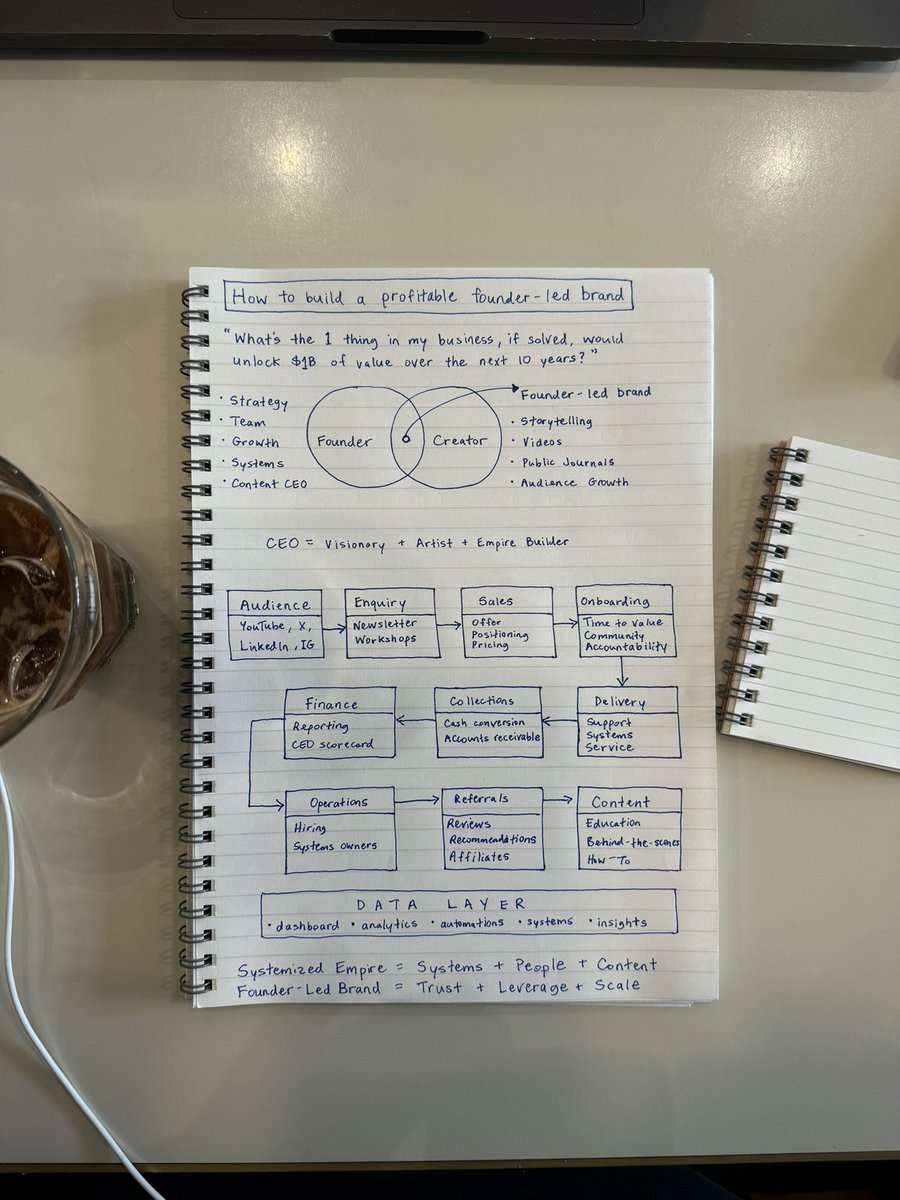 How to build a profitable founder-led brand
"What's the 1 thing in my business, if solved, would
unlock $1B of value over the next 10 years?"
• Strategy
• Team
• Growth
• Systems
• Content CEO
Founder
Creator
Founder-led brand
• Storytelling
• Videos
• Public Journals
• Audience Growth
CEO = Visionary + Artist + Empire Builder
Audience
YouTube, X,
LinkedIn, IG
Enquiry
Newsletter
Workshops
Sales
Offer
Positioning
Pricing
Onboarding
Time to value
Community
Accountability
Delivery
Support
Systems
Service
Collections
Cash conversion
Accounts receivable
Finance
Reporting
CEO scorecard
Operations
Hiring
Systems owners
Referrals
Reviews
Recommendations
Affiliates
Content
Education
Behind-the-scenes
How-To
DATA LAYER
• dashboard • analytics • automations • systems • insights
Systemized Empire = Systems + People + Content
Founder-Led Brand = Trust + Leverage + Scale